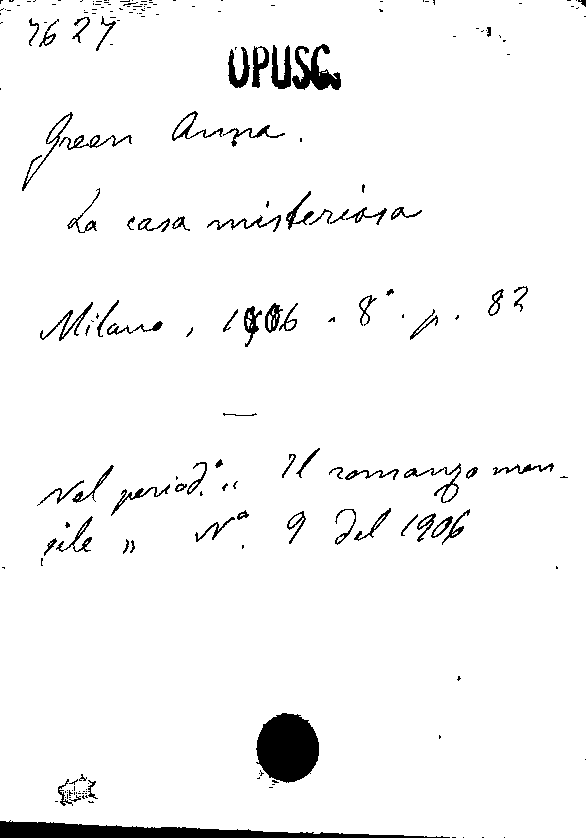 7627
OPUSC.
Green Anna.
La casa misteriosa
Milano, 1906 - 8°. p. 82
Nel period.° „ Il romanzo men-
sile „ N.° 9 del 1906